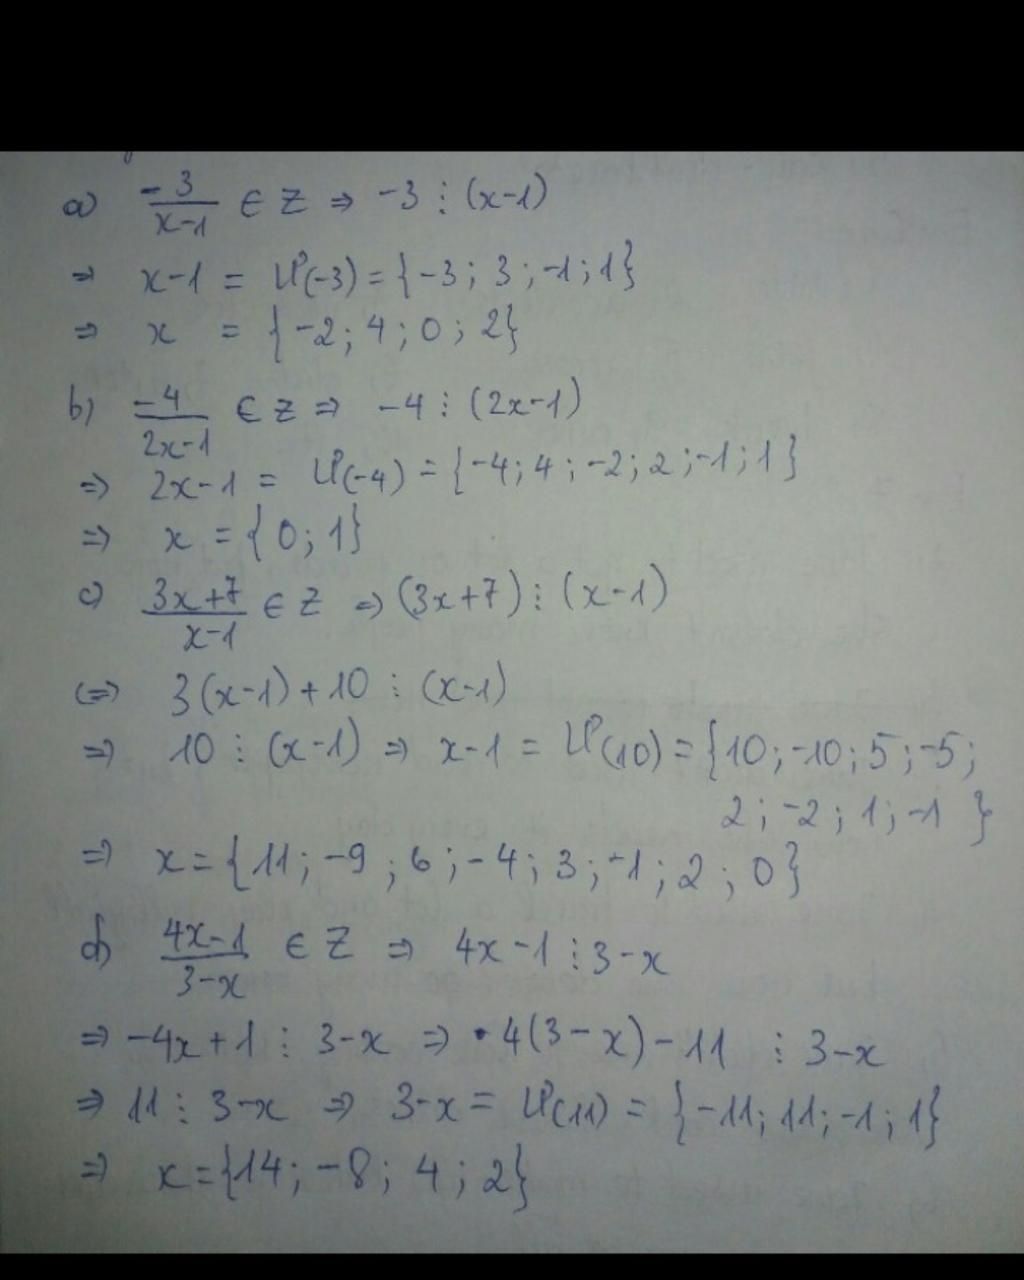 a) -3/x-1 ∈ Z ⇒ -3 ⋮ (x-1)
⇒ x-1 = Ư(-3) = {-3; 3; -1; 1}
⇒ x = {-2; 4; 0; 2}
b) -4/2x-1 ∈ Z ⇒ -4 ⋮ (2x-1)
⇒ 2x-1 = Ư(-4) = {-4; 4; -2; 2; -1; 1}
⇒ x = {0; 1}
c) 3x+7/x-1 ∈ Z ⇒ (3x+7) ⋮ (x-1)
(⇒ 3(x-1)+10 ⋮ (x-1)
⇒ 10 ⋮ (x-1) ⇒ x-1 = Ư(10) = {10; -10; 5; -5;
2; -2; 1; -1 }
⇒ x = {11; -9; 6; -4; 3; -1; 2; 0}
d) 4x-1/3-x ∈ Z ⇒ 4x-1 ⋮ 3-x
⇒ -4x+1 ⋮ 3-x ⇒ 4(3-x)-11 ⋮ 3-x
⇒ 11 ⋮ 3-x ⇒ 3-x = Ư(11) = {-11; 11; -1; 1}
⇒ x = {14; -8; 4; 2}